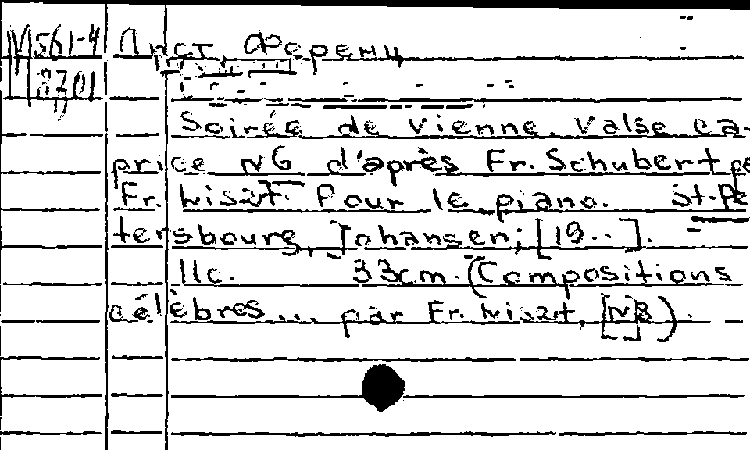 М561-4 Лист, Ференц
8701
Soirée de Vienne. Valse ca-
price N6 d'après Fr. Schubert pa
Fr. Liszt. Pour le piano. St.-Pe
tersbourg, Johansen; [19..].
11c. 33cm. (Compositions
célèbres... par Fr. Liszt, [N8]).